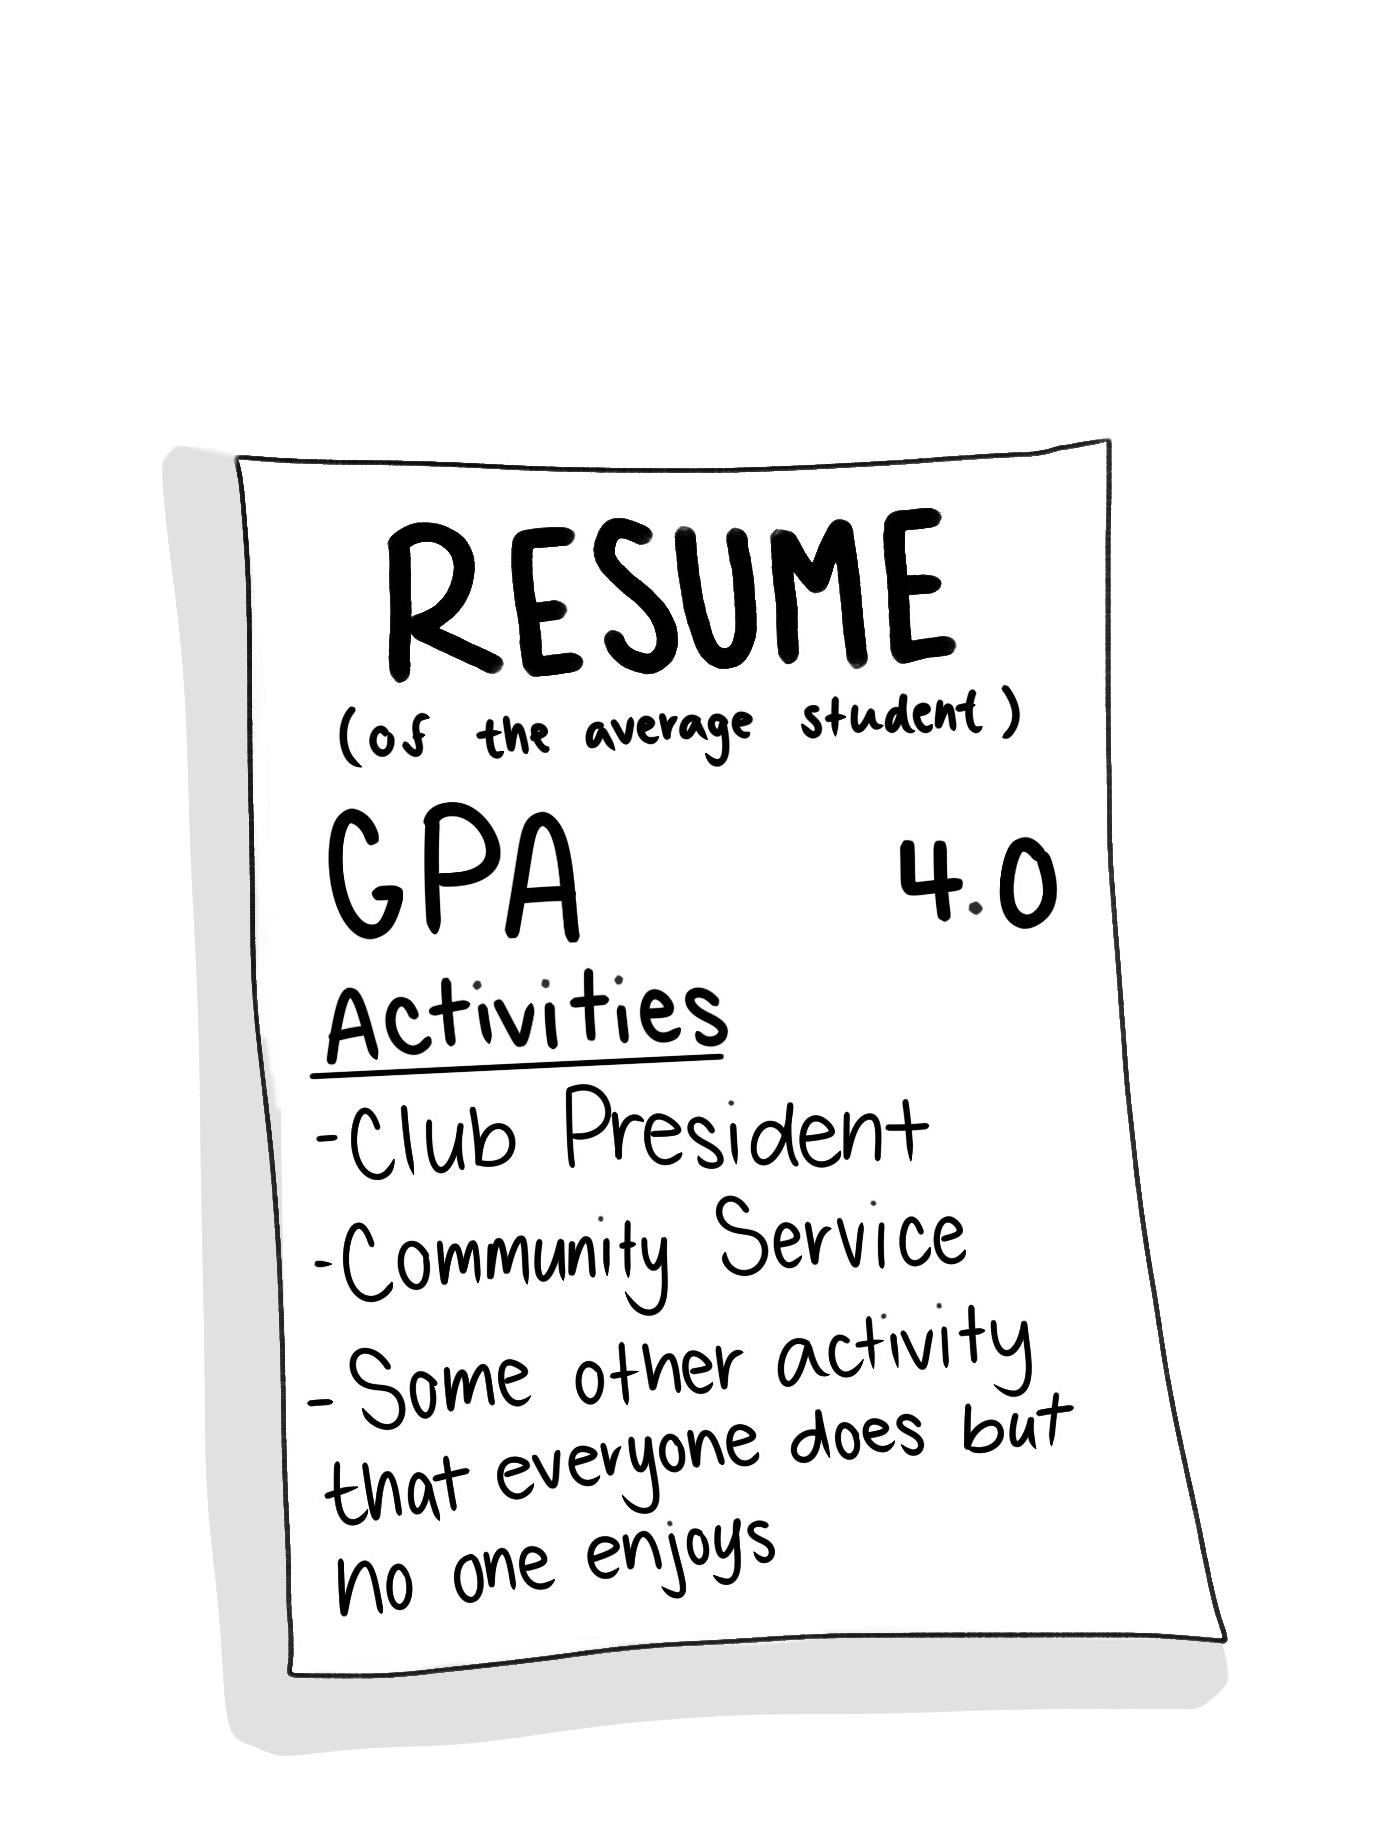 RESUME
(of the average student)
GPA 4.0
Activities
-Club President
-Community Service
-Some other activity
that everyone does but
no one enjoys